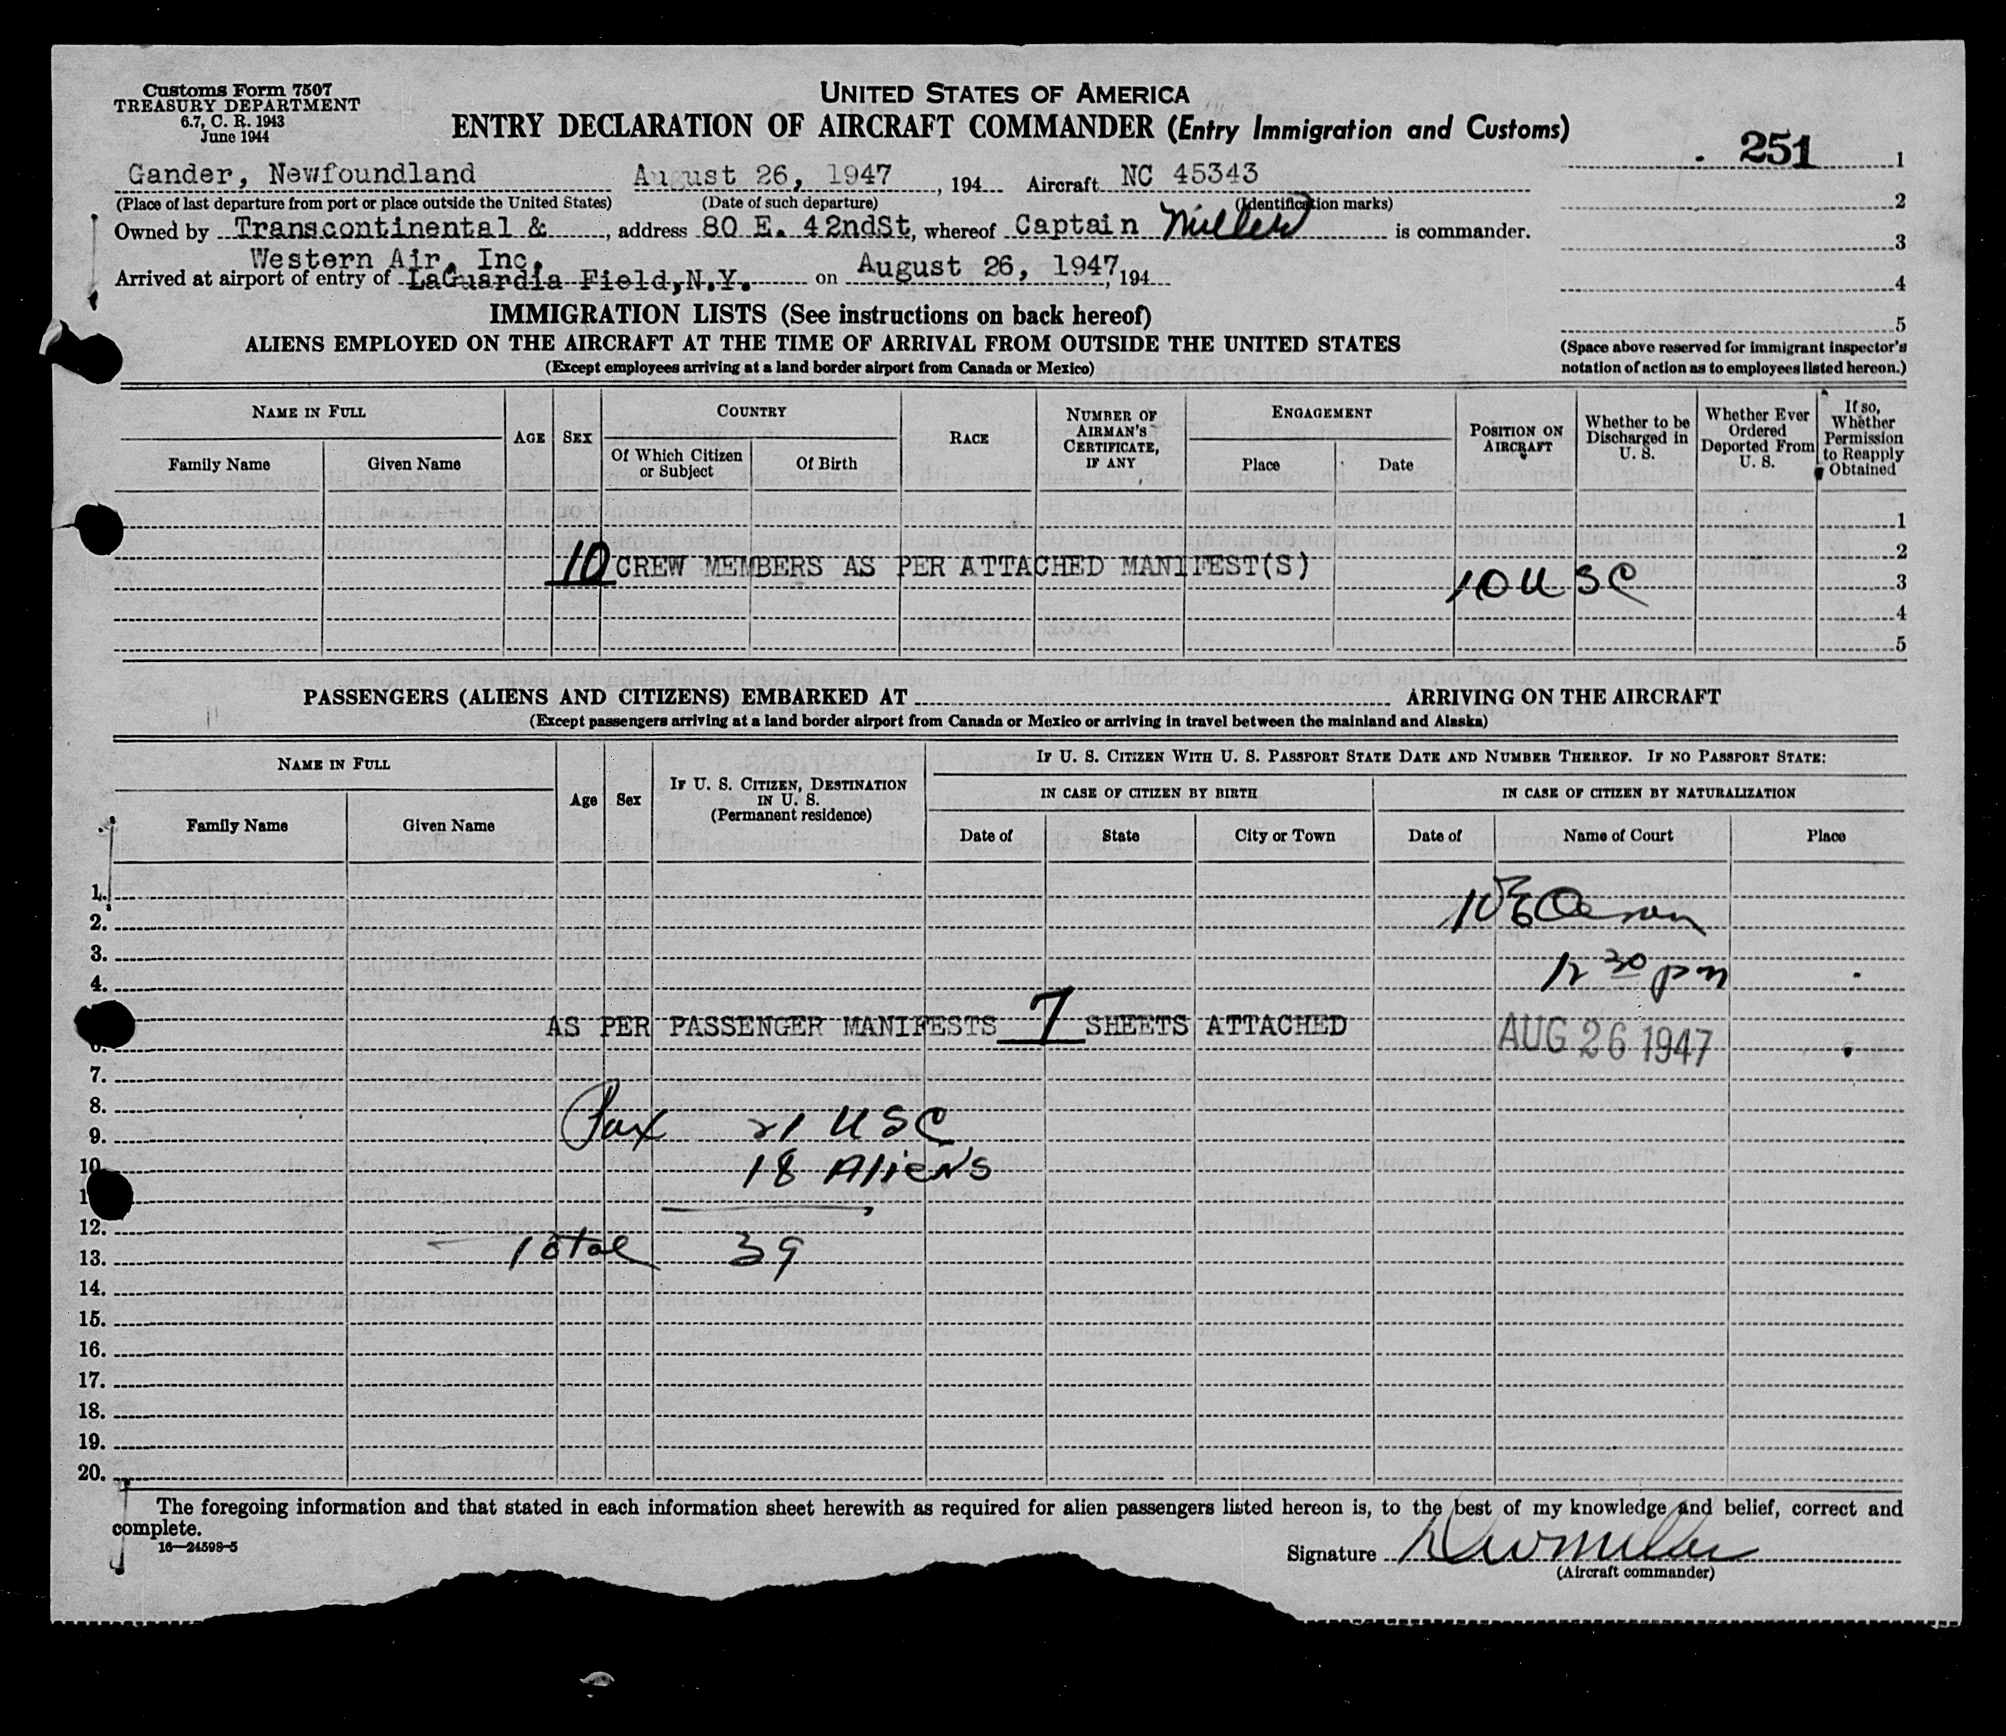 Customs Form 7507
TREASURY DEPARTMENT
6.7, C. R. 1943
June 1944
UNITED STATES OF AMERICA
ENTRY DECLARATION OF AIRCRAFT COMMANDER (Entry Immigration and Customs)
251 1
Gander, Newfoundland August 26, 1947, 194 Aircraft NC 45343
(Place of last departure from port or place outside the United States) (Date of such departure) (Identification marks)
2
Owned by Transcontinental & , address 80 E. 42ndSt, whereof Captain Miller is commander.
3
Western Air, Inc.
Arrived at airport of entry of LaGuardia Field,N.Y. on August 26, 1947, 194
4
IMMIGRATION LISTS (See instructions on back hereof)
5
ALIENS EMPLOYED ON THE AIRCRAFT AT THE TIME OF ARRIVAL FROM OUTSIDE THE UNITED STATES
(Except employees arriving at a land border airport from Canada or Mexico)
(Space above reserved for immigrant inspector's
notation of action as to employees listed hereon.)
NAME IN FULL
Family Name
Given Name
AGE
SEX
COUNTRY
Of Which Citizen or Subject
Of Birth
RACE
NUMBER OF AIRMAN'S CERTIFICATE, IF ANY
ENGAGEMENT
Place
Date
POSITION ON AIRCRAFT
Whether to be Discharged in U. S.
Whether Ever Ordered Deported From U. S.
If so, Whether Permission to Reapply Obtained
1
2
10 CREW MEMBERS AS PER ATTACHED MANIFEST(S)
10 U S C 3
4
5
PASSENGERS (ALIENS AND CITIZENS) EMBARKED AT ARRIVING ON THE AIRCRAFT
(Except passengers arriving at a land border airport from Canada or Mexico or arriving in travel between the mainland and Alaska)
NAME IN FULL
Family Name
Given Name
Age
Sex
IF U. S. CITIZEN, DESTINATION IN U. S.
(Permanent residence)
IF U. S. CITIZEN WITH U. S. PASSPORT STATE DATE AND NUMBER THEREOF. IF NO PASSPORT STATE:
IN CASE OF CITIZEN BY BIRTH
Date of
State
City or Town
IN CASE OF CITIZEN BY NATURALIZATION
Date of
Name of Court
Place
1.
2.
3.
4. 12 30 pm
AS PER PASSENGER MANIFESTS 7 SHEETS ATTACHED
AUG 26 1947
7.
8.
9. Pax 21 USC
10 18 Aliens
12.
13. Total 39
14.
15.
16.
17.
18.
19.
20.
The foregoing information and that stated in each information sheet herewith as required for alien passengers listed hereon is, to the best of my knowledge and belief, correct and
complete.
16—24598-5
Signature
(Aircraft commander)